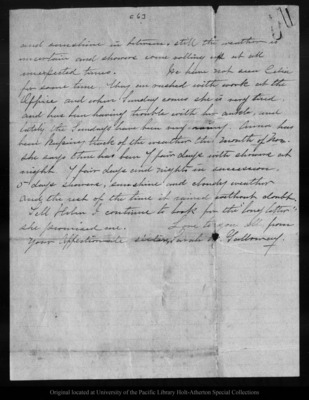 663
and sunshine in between, still the weather is
uncertain and showers come rolling up at all
unexpected times. We have not seen Celia
for some time. They are rushed with work at the
Office and when Sunday comes she is very tired,
and has been having trouble with her ankle, and
lately the Sundays have been very rainy. Anna has
been keeping track of the weather the month of Nov.
she says there has been 7 fair days with showers at
night. 7 fair days and nights in succession.
days showers, sunshine and cloudy weather
and the rest of the time it rained without doubt.
Tell Helen I continue to look for the "long letter"
she promised me. Love to you all from
Your Affectionate sister, Sarah M. Galloway
Original located at University of the Pacific Library Holt-Atherton Special Collections